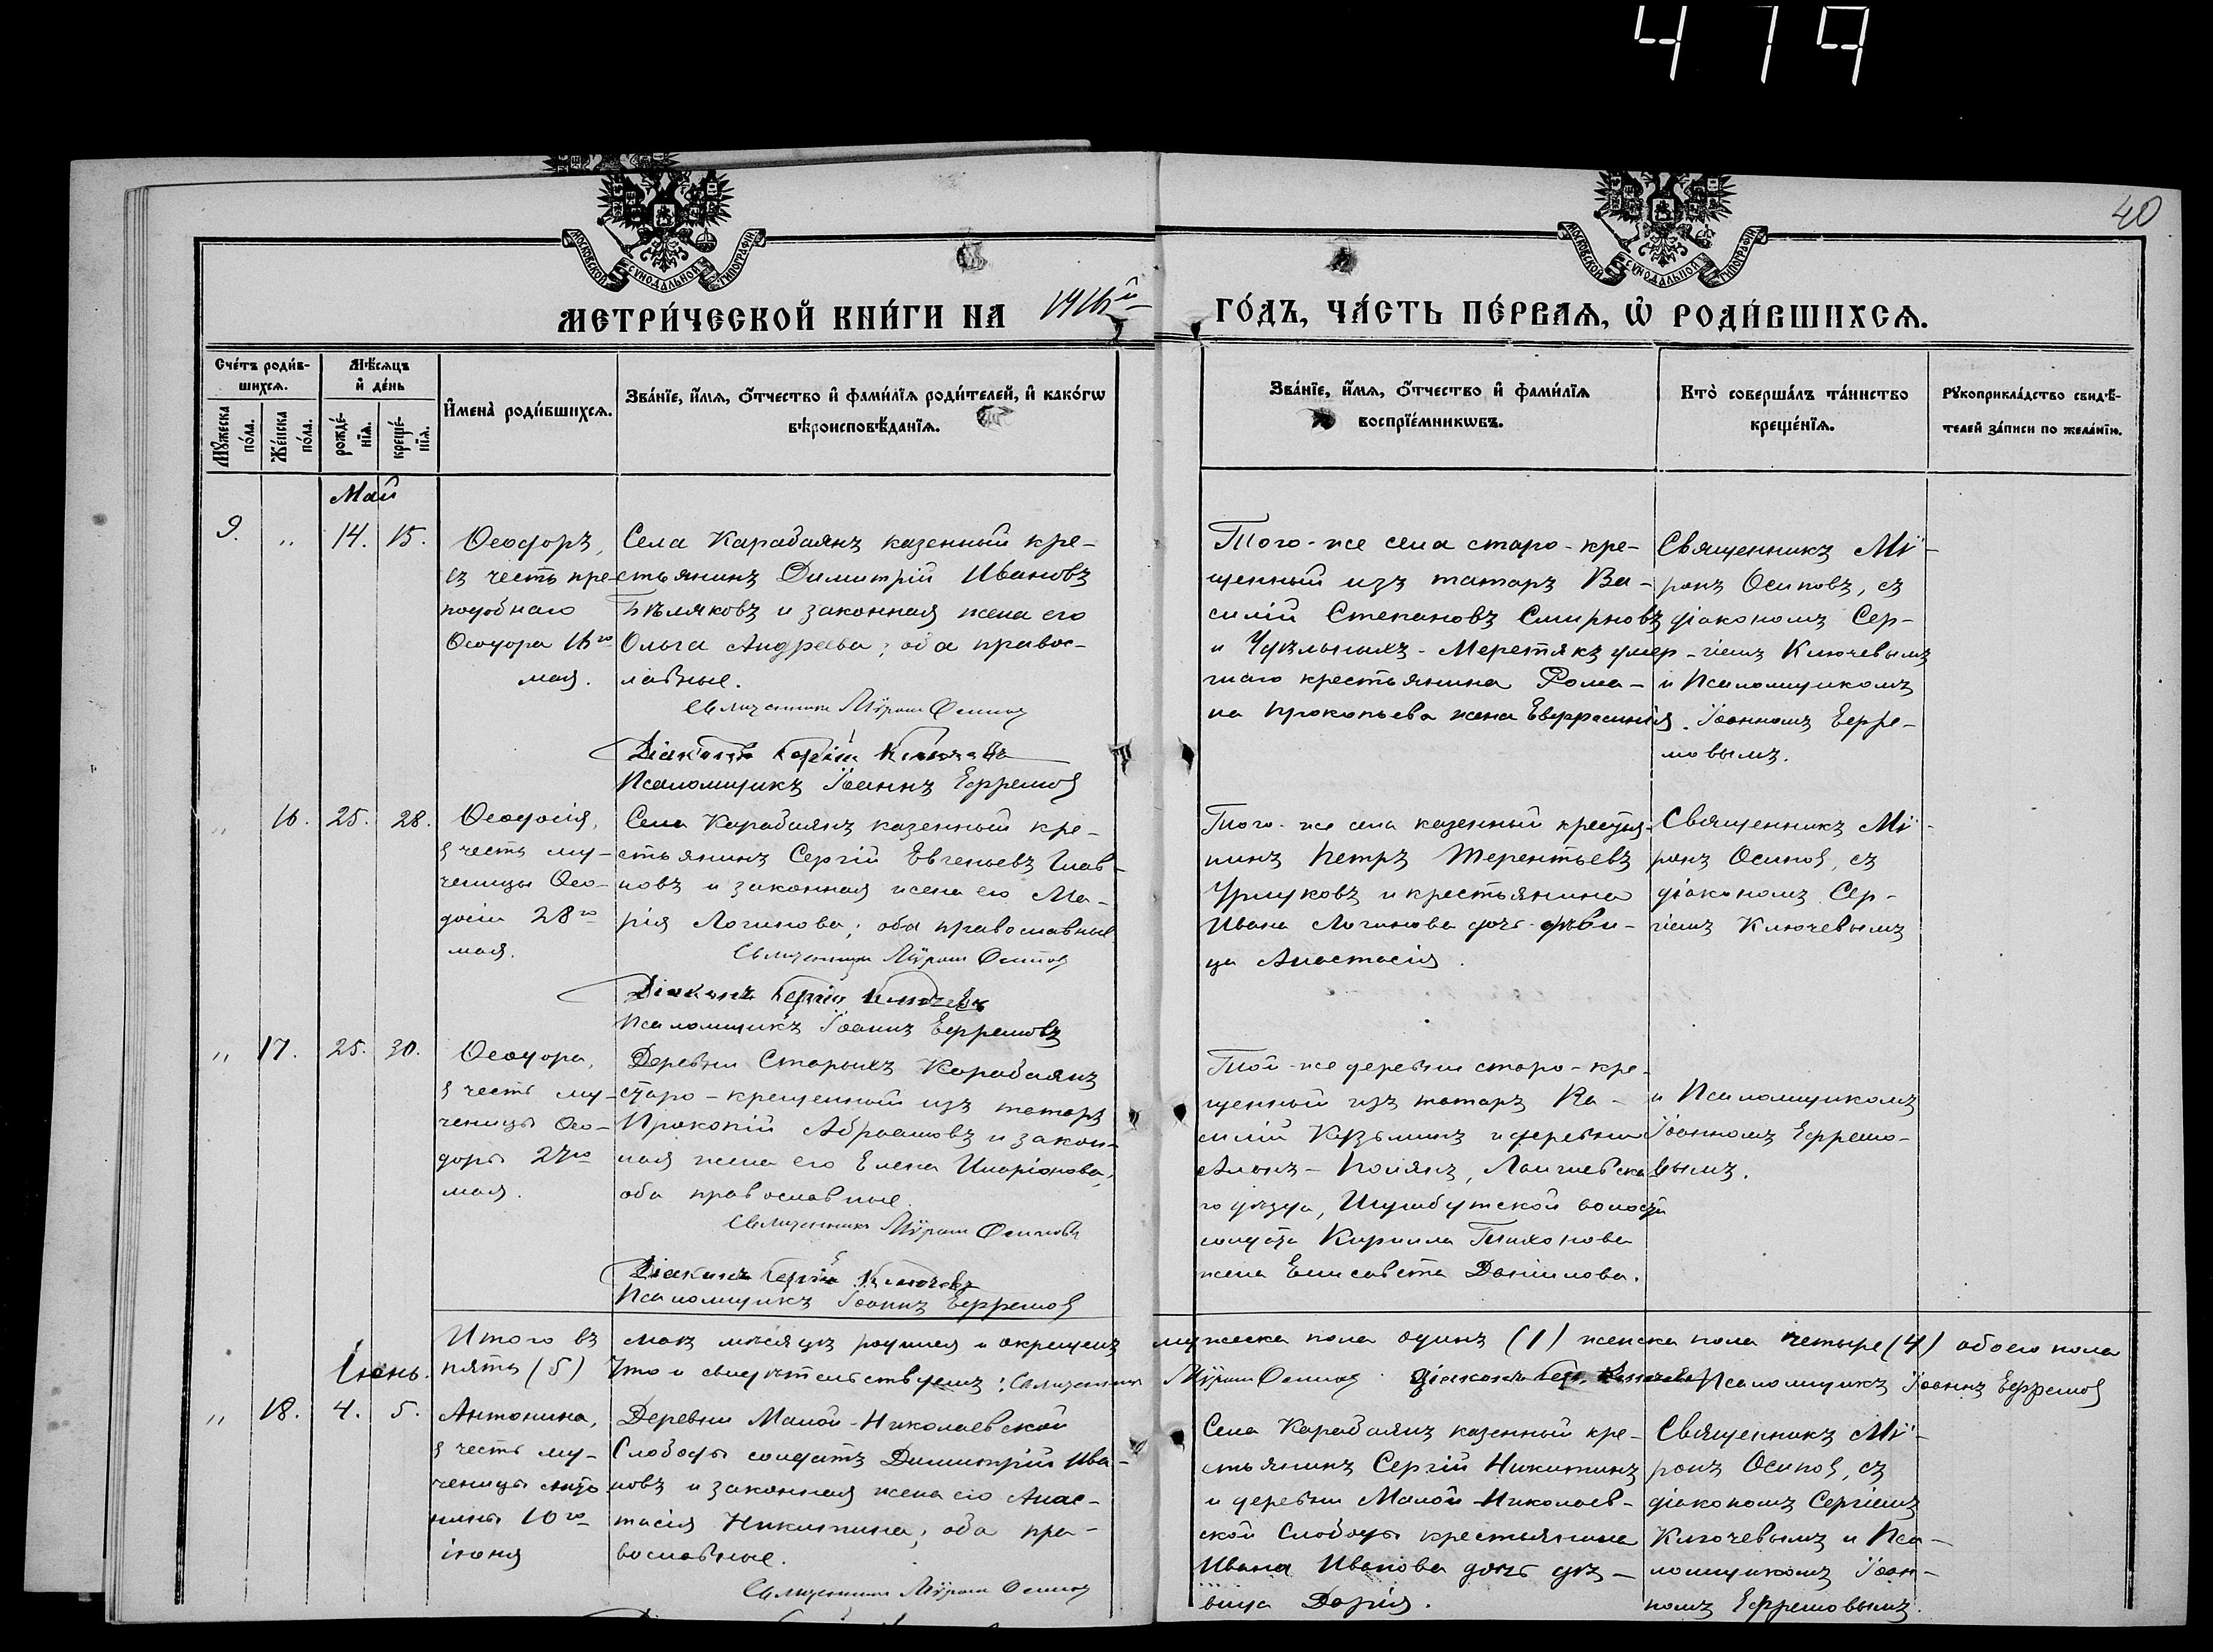 479
40
МОСКОВСКОЙ СѴНОДАЛЬНОЙ ТИПОГРАФІИ
МОСКОВСКОЙ СѴНОДАЛЬНОЙ ТИПОГРАФІИ
МЕТРИ́ЧЕСКОЙ КНИ́ГИ НА 1916й
ГО́ДЪ, ЧА́СТЬ ПЕ́РВАЯ, Ѡ РОДИ́ВШИХСЯ.
Сче́тъ роди́в-
шихся.
Мѣ́сяцъ
и де́нь
Мꙋ́жеска
по́ла.
Же́нска
по́ла.
рожде́-
нїя.
креще́-
нїя.
Имена̀ роди́вшихся.
Зва́нїе, и́мя, ѻ́тчество и фами́лїя роди́телей, и како́гѡ
вѣроисповѣ́данїя.
Зва́нїе, и́мя, ѻ́тчество и фами́лїя
воспрїе́мникѡвъ.
Кто̀ соверша́лъ та́инство
креще́нїя.
Рꙋкоприкла́дство свидѣ́-
телей за́писи по жела́нїю.
Май
9. " 14. 15.
Ѳеодоръ,
въ честь пре-
подобнаго
Ѳеодора 16го
мая.
Села Карабаянъ казенный кре-
стьянинъ Димитрій Ивановъ
Бѣляковъ и законная жена его
Ольга Андреева; оба правос-
лавные.
Священникъ Мѵронъ Осипов
Діаконъ Сергій Ключевъ
Псаломщикъ Іоаннъ Ефремов
Того-же села старо-кре-
щенный изъ татаръ Ва-
силій Степановъ Смирновъ
и Меретякъ умер-
шаго крестьянина Рома-
на Прокопьева жена Евфросинія.
Священникъ Мѵ-
ронъ Осиповъ, съ
діакономъ Сер-
гіемъ Ключевымъ
и Псаломщикомъ
Іоанномъ Ефре-
мовымъ.
" 16. 25. 28.
Ѳеодосія,
в честь му-
ченицы Ѳео-
досіи 28го
мая.
Села Карабаянъ казенный кре-
стьянинъ Сергій Евгеньевъ
новъ и законная жена его Ма-
рія Логинова; оба православные
Священникъ Мѵронъ Осипов
Діаконъ Сергій Ключевъ
Псаломщикъ Іоаннъ Ефремовъ
Того-же села казенный крестья-
нинъ Петръ Терентьевъ
и крестьянина
Ивана Логинова дочь дѣви-
ца Анастасія.
Священникъ Мѵ-
ронъ Осипов, съ
діакономъ Сер-
гіемъ Ключевымъ
" 17. 25. 30.
Ѳеодора,
в честь му-
ченицы Ѳео-
доры 27го
мая.
Деревни Старыхъ Карабаянъ
старо-крещенный изъ татаръ
Прокопій Абрамовъ и закон-
ная жена его Елена Иларіонова,
оба православные.
Священникъ Мѵронъ Осиповъ
Діаконъ Сергій Ключевъ
Псаломщикъ Іоаннъ Ефремов
Той-же деревни старо-кре-
щенный изъ татаръ Ва-
силій Кузьминъ и деревни
Полянъ, Лаишевска-
го уѣзда, Шумбутской волости
солдата Кирилла Тихонова
жена Елисавета Даніилова.
и Псаломщикомъ
Іоанномъ Ефремо-
вымъ.
Итого въ маѣ мѣсяцѣ родился и окрещенъ мужеска пола одинъ (1) женска пола четыре (4) обоего пола
пять (5) Что и свидѣтельствуемъ: Священникъ Мѵронъ Осипов Діаконъ Сер. Ключевъ Псаломщикъ Іоаннъ Ефремов
Іюнь.
" 18. 4. 5.
Антонина,
в честь му-
ченицы Анто
нины 10го
іюня
Деревни Малой-Николаевской
Слободы солдатъ Димитрій Ива-
новъ и законная жена его Анас-
тасія Никитина; оба пра-
вославные.
Священникъ Мѵронъ Осипов
Села Карабаянъ казенный кре-
стьянинъ Сергій Никитинъ
и деревни Малой-Николаев-
ской Слободы крестьянина
Ивана Иванова дочь дѣ-
вица Дарія.
Священникъ Мѵ-
ронъ Осипов, съ
діакономъ Сергіемъ
Ключевымъ и Пса-
ломщикомъ Іоан-
номъ Ефремовымъ.